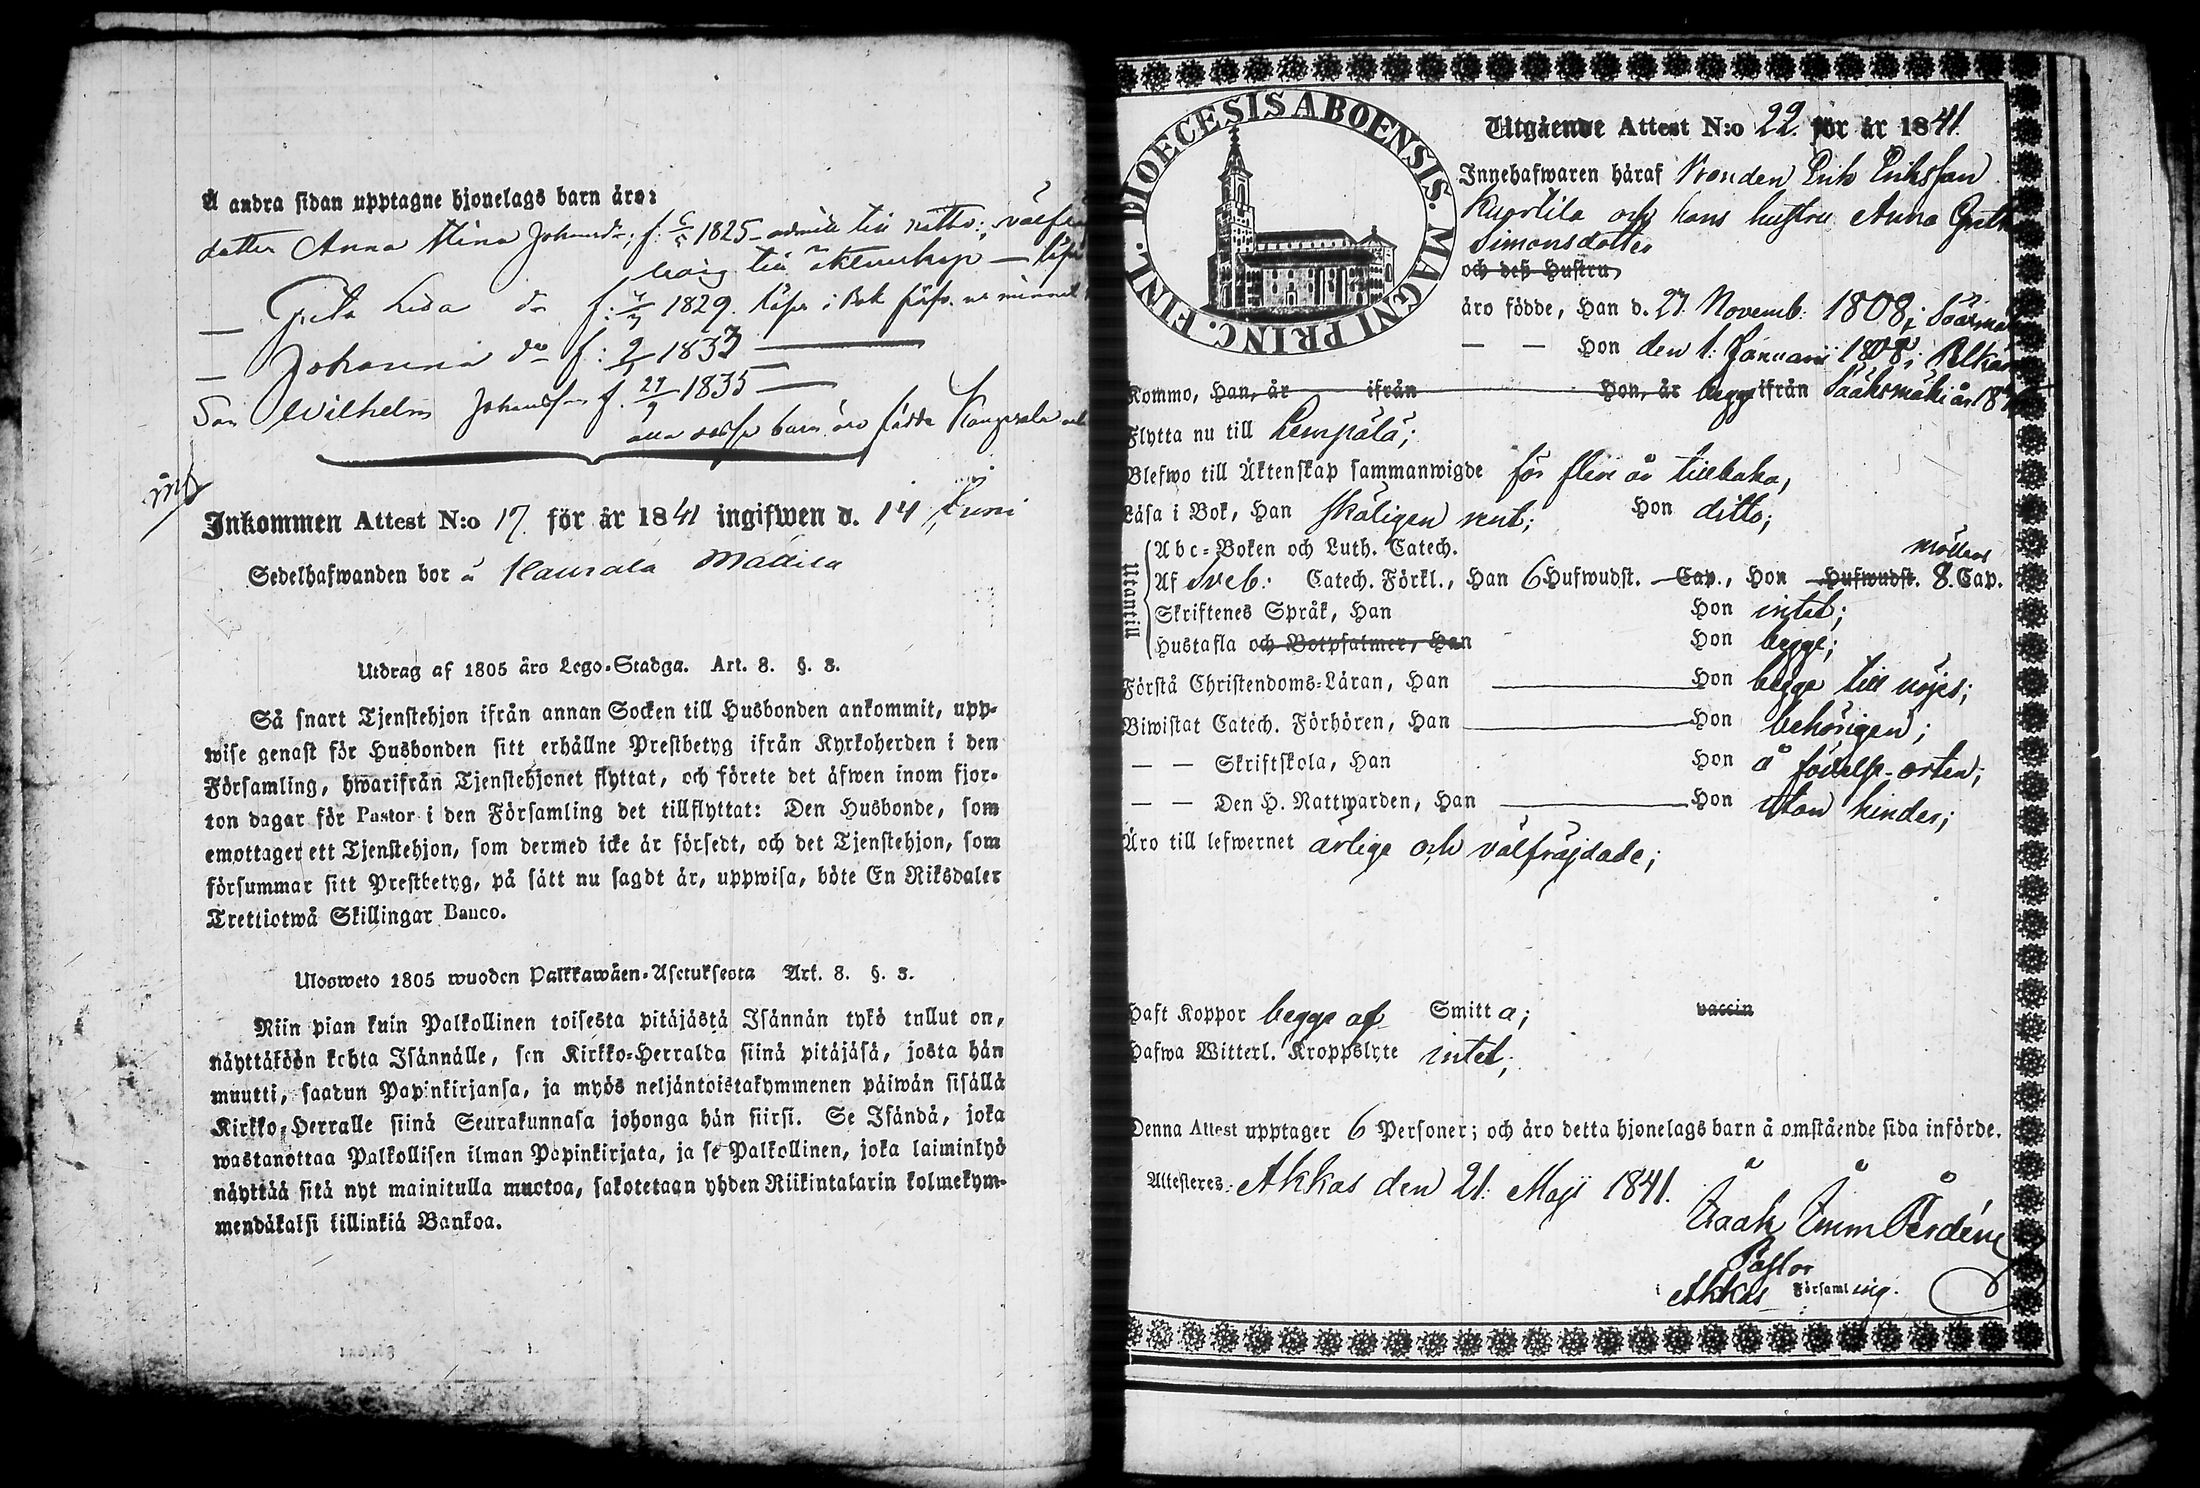 Å andra sidan upptagne hjonelags barn äro:
dotter Anna Stina Johansdr; f: 1825 – till nattv:; välfr
ledig till äktenskap –
— Greta Lisa do f: 1829. läser i Bok
— Johanna do f: 1833 —
Son Wilhelm Johansson f. 29/9 1835 —
alla dessa barn äro födde Kangasala
Inkommen Attest N:o 17 för år 1841 ingifwen d. 14 Juni
Sedelhafwanden bor å Kaurala Mattila
Utdrag af 1805 åro Lego-Stadga. Art. 8. §. 3.
Så snart Tjenstehjon ifrån annan Socken till Husbonden ankommit, upp-
wise genast för Husbonden sitt erhållne Prestbetyg ifrån Kyrkoherden i den
Församling, hwarifrån Tjenstehjonet flyttat, och förete det äfwen inom fjor-
ton dagar för Pastor i den Församling det tillflyttat: Den Husbonde, som
emottager ett Tjenstehjon, som dermed icke är försedt, och det Tjenstehjon, som
försummar sitt Prestbetyg, på sätt nu sagdt är, uppwisa, böte En Riksdaler
Trettiotwå Skillingar Banco.
Ulosweto 1805 wuoden Palkkawäen-Asetuksesta Art. 8. §. 3.
Niin pian kuin Palkollinen toisesta pitäjästä Isännän tykö tullut on,
näyttäköön kohta Isännälle, sen Kirkko-Herralda siinä pitäjäsä, josta hän
muutti, saadun Papinkirjansa, ja myös neljäntoistakymmenen päiwän sisällä
Kirkko-Herralle siinä Seurakunnasa johonga hän siirsi. Se Isändä, joka
wastanottaa Palkollisen ilman Papinkirjata, ja se Palkollinen, joka laiminlyö
näyttää sitä nyt mainitulla muotoa, sakotetaan yhden Riikintalarin kolmekym-
mendäkaksi killinkiä Bankoa.
DIOECESIS ABOENSIS. MAGNI PRINC. FINL.
Utgående Attest N:o 22. för år 1841.
Innehafwaren häraf Bonden Erik Eriksson
Kuortila och hans hustru Anna Greta
Simonsdotter
och deß Hustru
äro födde, Han d. 27 Novemb: 1808, i Sääxmä
— — Hon den 1. Januarii 1808; i Pelkän
Kommo, Han, är ifrån Hon, är begge ifrån Sääksmäki år 18
Flytta nu till Lempälä;
Blefwo till Äktenskap sammanwigde för flere år tillbaka,
Läsa i Bok, Han skäligen rent; Hon ditto;
Utantill
Abc-Boken och Luth. Catech. Möllers
Af Sveb: Catech. Förkl., Han 6 Hufwudst. Cap., Hon Hufwudst. 8. Cap.
Skriftenes Språk, Han Hon intet;
Hustafla och Botpsalmer, Han Hon begge;
Förstå Christendoms-Läran, Han Hon begge till nöjes;
Biwistat Catech. Förhören, Han Hon behörigen;
— — Skriftskola, Han Hon å födelse-orten;
— — Den H. Nattwarden, Han Hon utan hinder;
Äro till lefwernet ärlige och välfräjdade;
Haft Koppor begge af Smitta; vaccin
Hafwa Witterl. Kroppslyte intet;
Denna Attest upptager 6 Personer; och äro detta hjonelags barn å omstående sida införde.
Attesteres: Akkas den 21. Maji 1841.
Isaak Imm
Pastor
i Akkas Församling.